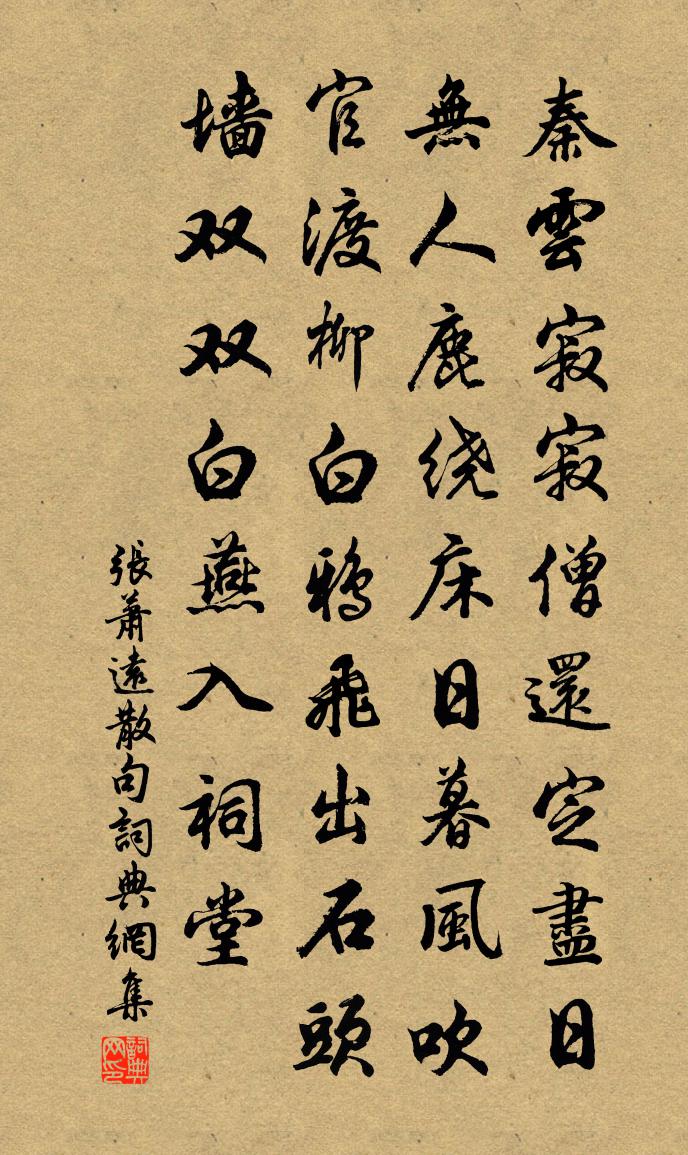 秦雲寂寂僧還定盡日
無人鹿绕床日暮風吹
官渡柳白鸦飛出石頭
墙双双白燕入祠堂
張蕭遠散句詞典網集
詞典网印